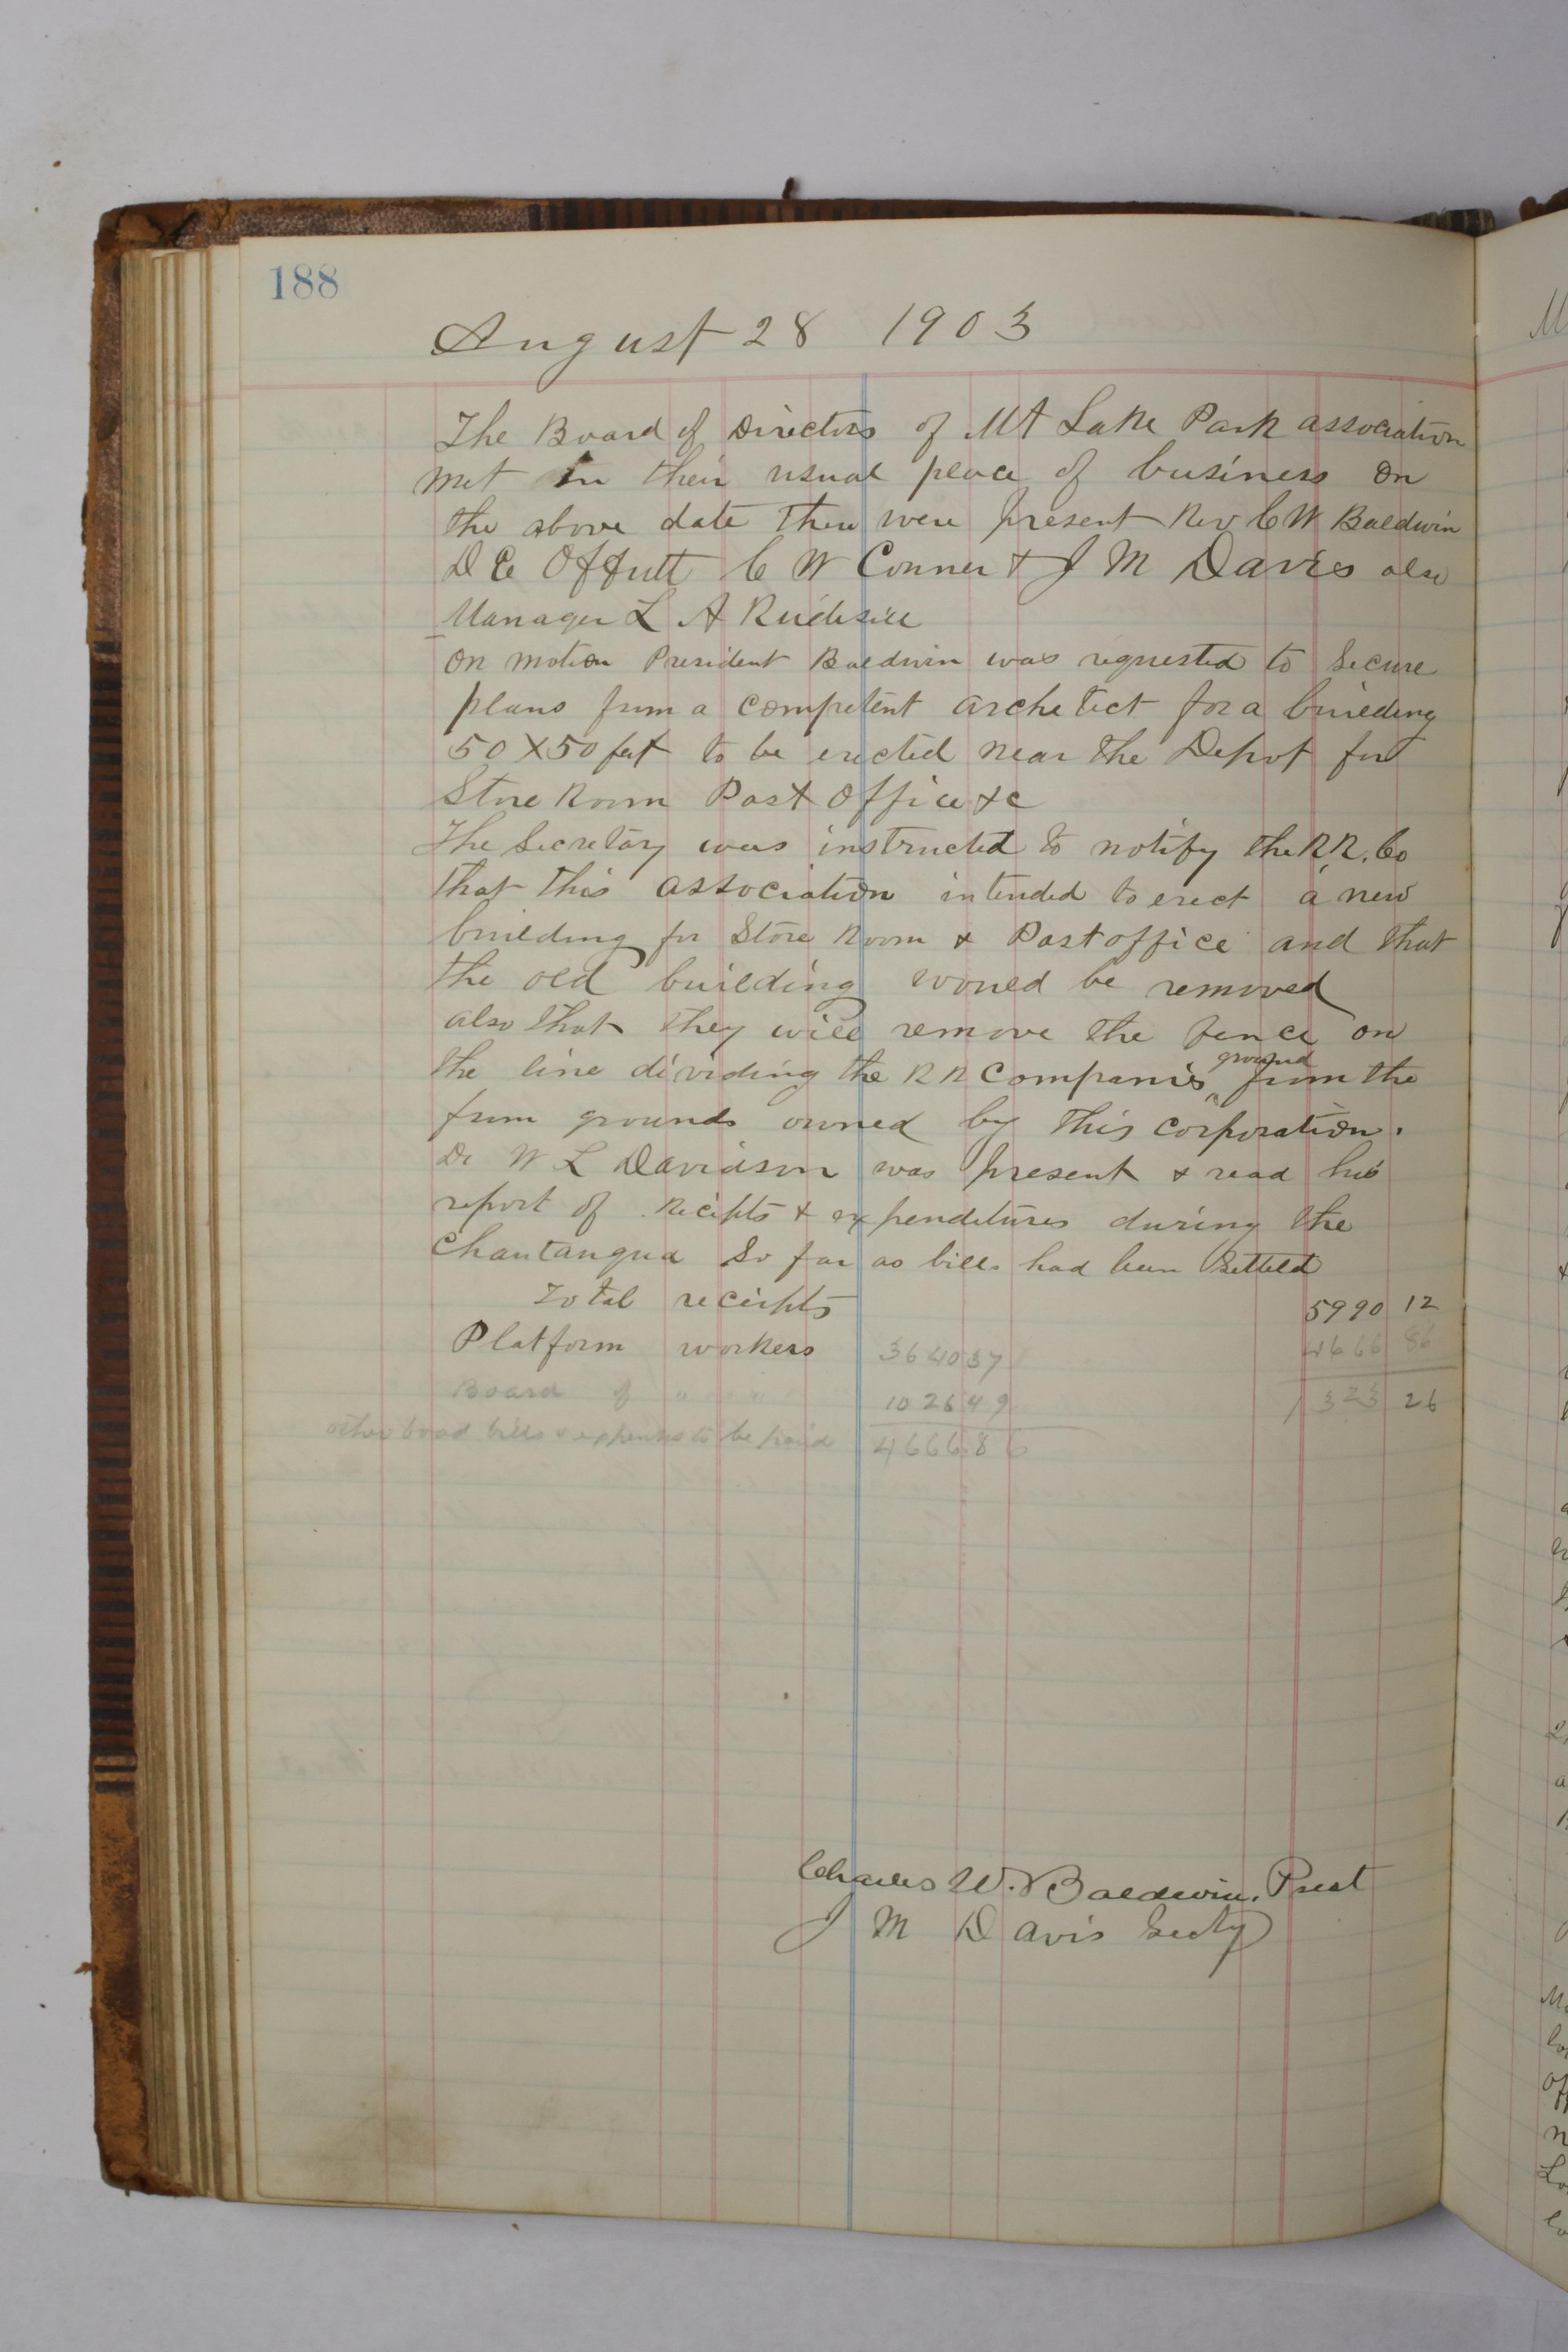 188
August 28 1903
The Board of Directors of Mt Lake Park association
met in their usual place of business on
the above date There were present Rev C W Baldwin
D E Offutt C W Conner & J M Davis also
Manager L A Rudisill
On motion President Baldwin was requested to secure
plans from a competent archetect for a building
50 X 50 feet to be erected near the Depot for
Store Room Post Office &c
The Secretary was instructed to notify the R.R. Co
that this association intended to erect a new
building for Store Room & Post office and that
the old building would be removed
also that they will remove the fence on
the line dividing the R R Companies ground from the
from grounds owned by this corporation.
Dr W L Davidson was present & read his
report of Reciepts & expenditures during the
Chautauqua So far as bills had been Setteld
Total reciepts 5990 12
Platform workers 3640 37 4666 86
Board of " " 1026 49 1323 26
other board bills & expenses to be paid 4666.86
Charles W. Baldwin. Prest
J M Davis Secty